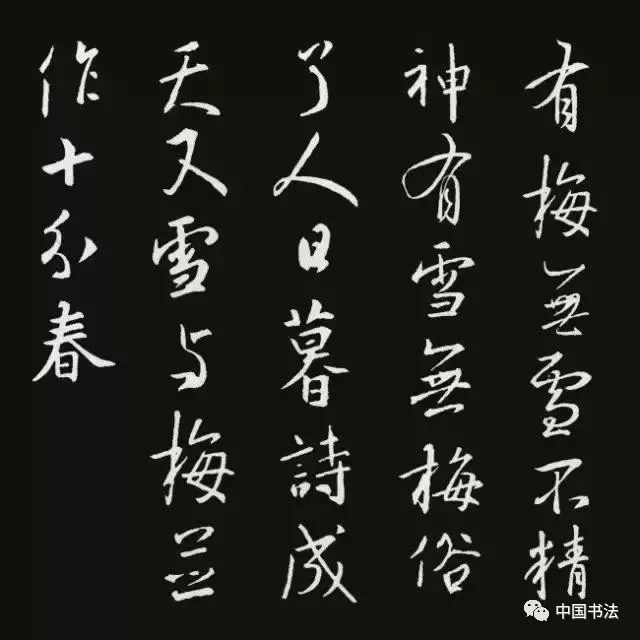 有梅無雪不精
神有雪無梅俗
了人日暮詩成
天又雪与梅並
作十分春
中国书法